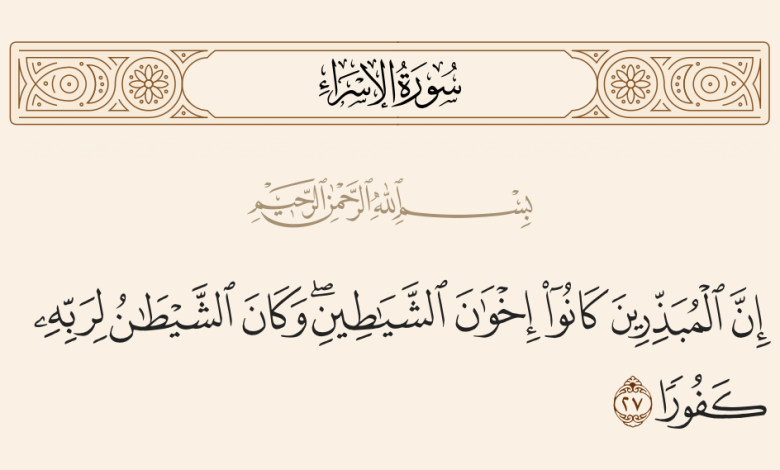 سُورَةُ الإِسْرَاءِ
بِسْمِ ٱللَّهِ ٱلرَّحْمَٰنِ ٱلرَّحِيمِ
إِنَّ ٱلْمُبَذِّرِينَ كَانُوٓا۟ إِخْوَٰنَ ٱلشَّيَٰطِينِ ۖ وَكَانَ ٱلشَّيْطَٰنُ لِرَبِّهِۦ
كَفُورًا ٢٧